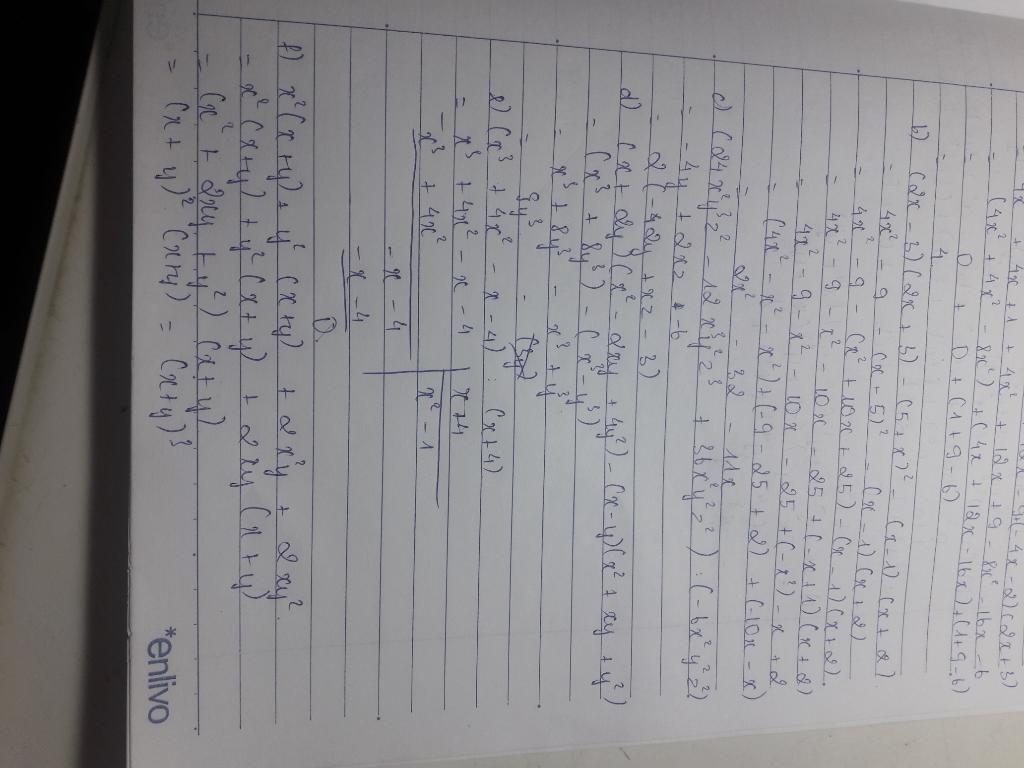 = (4x² + 4x² - 8x²) + (4x + 12x - 16x) + (1+9-6)
= 0 + 0 + (1+9-6)
= 4
b) (2x-3)(2x+3) - (5+x)² - (x-1)(x+2)
= 4x² - 9 - (x+5)² - (x-1)(x+2)
= 4x² - 9 - (x²+10x+25) - (x-1)(x+2)
= 4x² - 9 - x² - 10x - 25 + (-x+1)(x+2)
= 4x² - 9 - x² - 10x - 25 + (-x²) - x + 2
= (4x² - x² - x²) + (-9 - 25 + 2) + (-10x - x)
= 2x² - 32 - 11x
c) (24x²y³z² - 12x³y²z³ + 36x²y²z²) : (-6x²y²z²)
= -4y + 2xz - 6
= 2(-2y + xz - 3)
d) (x+2y)(x²-2xy+4y²) - (x-y)(x²+xy+y²)
= (x³ + 8y³) - (x³ - y³)
= x³ + 8y³ - x³ + y³
= 9y³
e) (x³ + 4x² - x - 4) : (x+4)
= x³ + 4x² - x - 4 x+4
- x³ + 4x² x² - 1
- x - 4
- x - 4
0
f) x²(x+y) + y²(x+y) + 2x²y + 2xy²
= x²(x+y) + y²(x+y) + 2xy(x+y)
= (x² + 2xy + y²)(x+y)
= (x+y)²(x+y) = (x+y)³
*enlivo